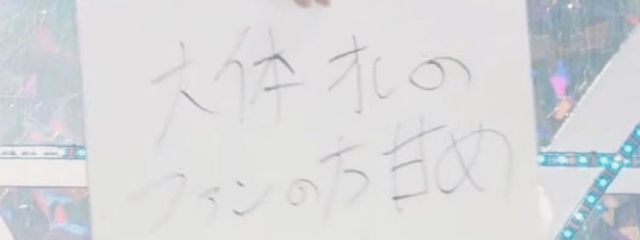 大体オレの
ファンの方甘め